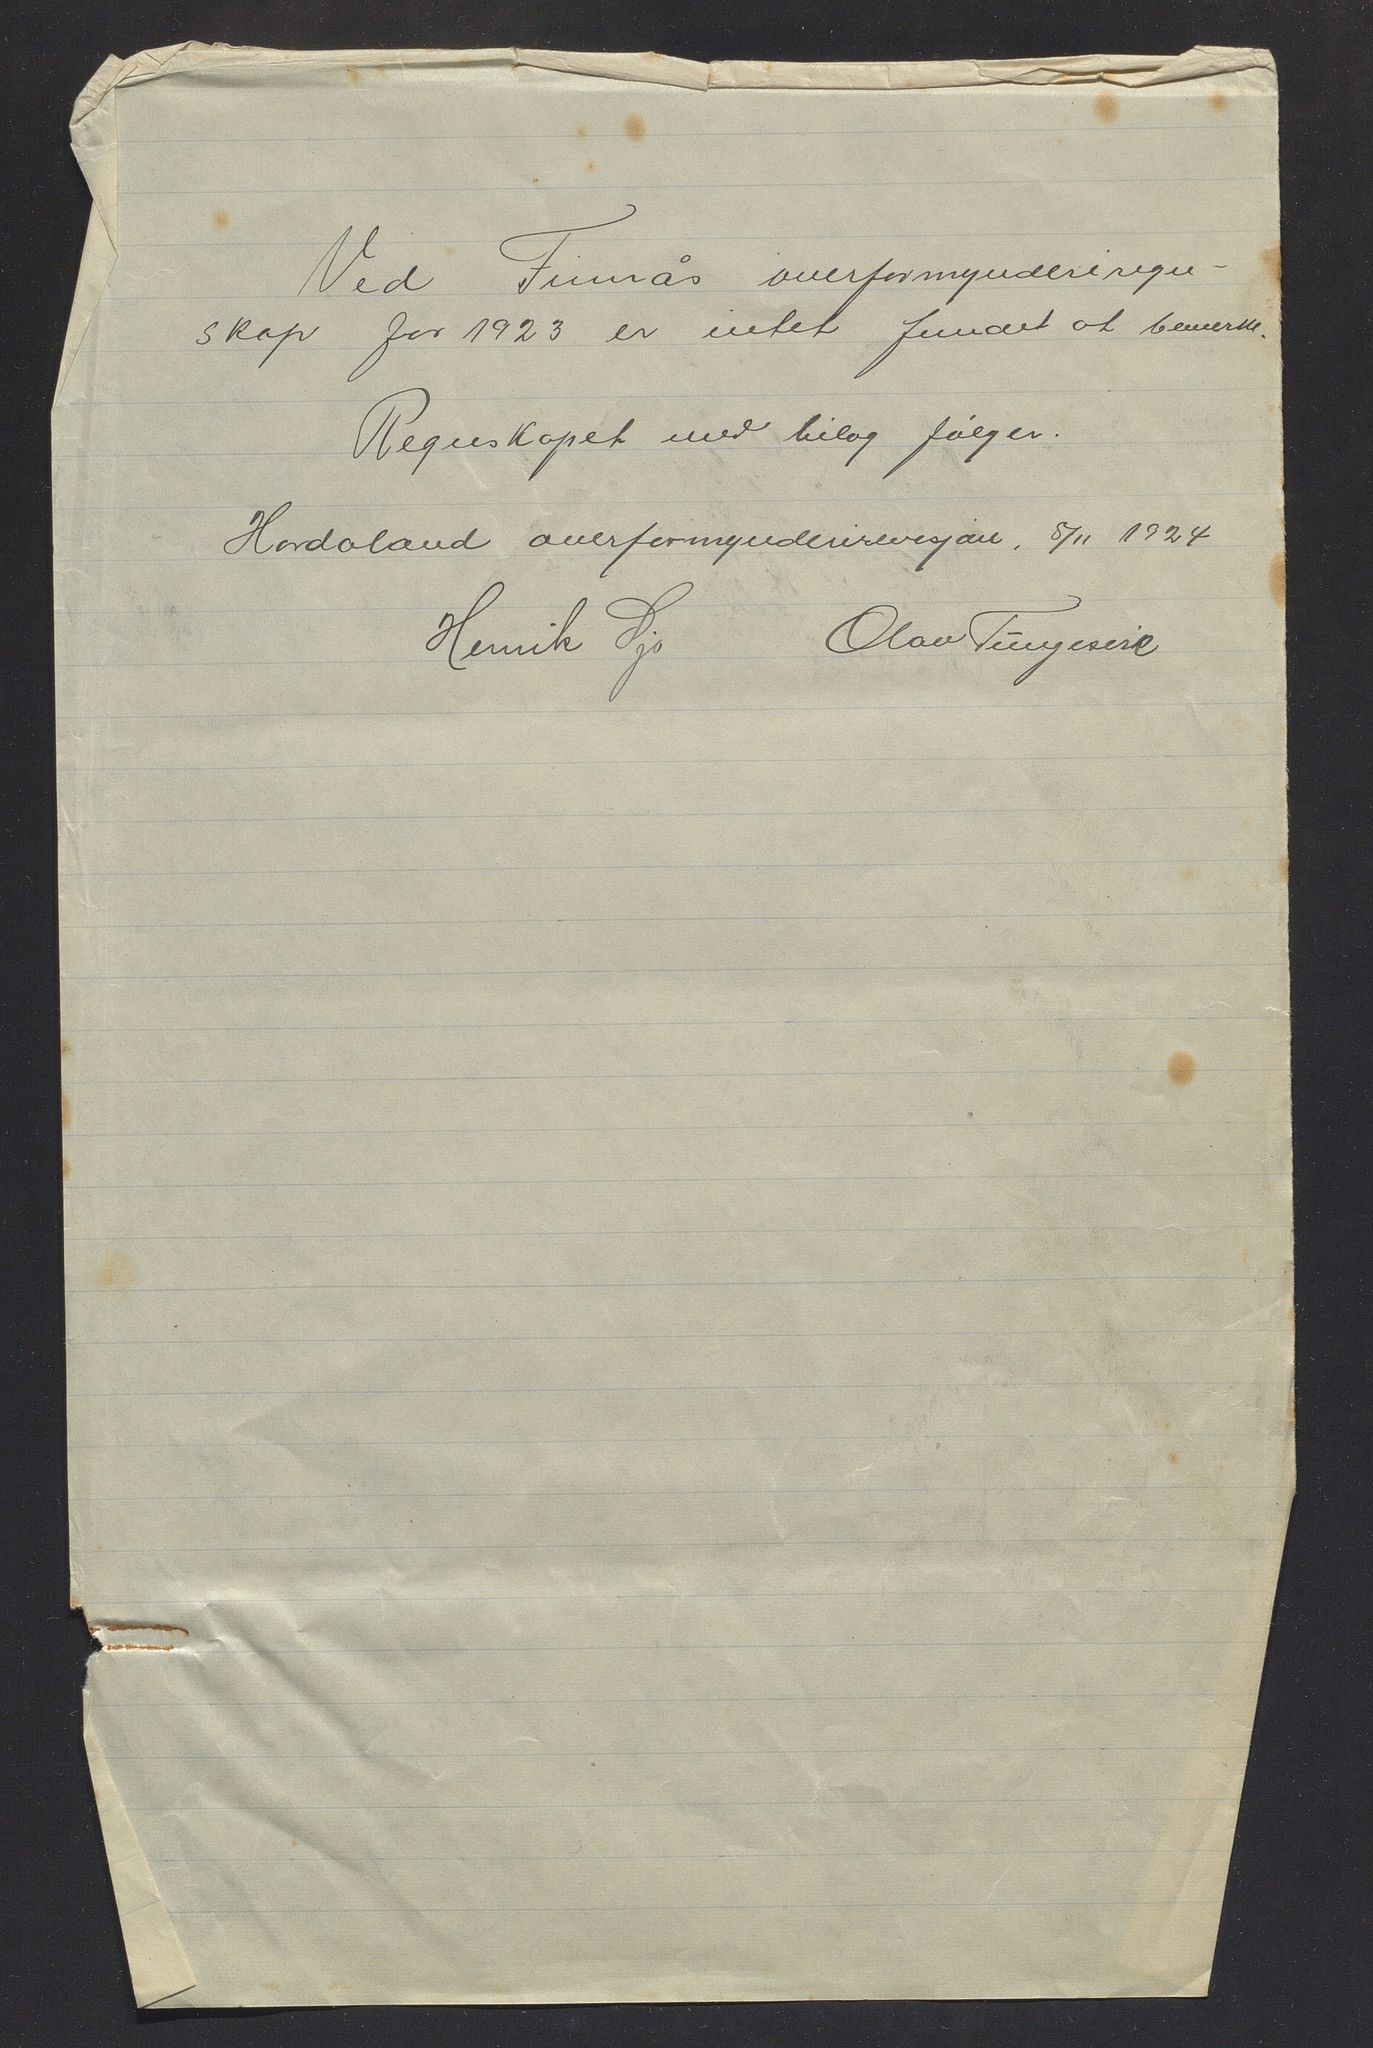 Ved Finnås overformynderiregn-
skap for 1923 er intet fundet at bemerke.
Regnskapet med bilag følger.
Hordaland overformynderirevisjon, 5/11 1924
Henrik Sjo Olav